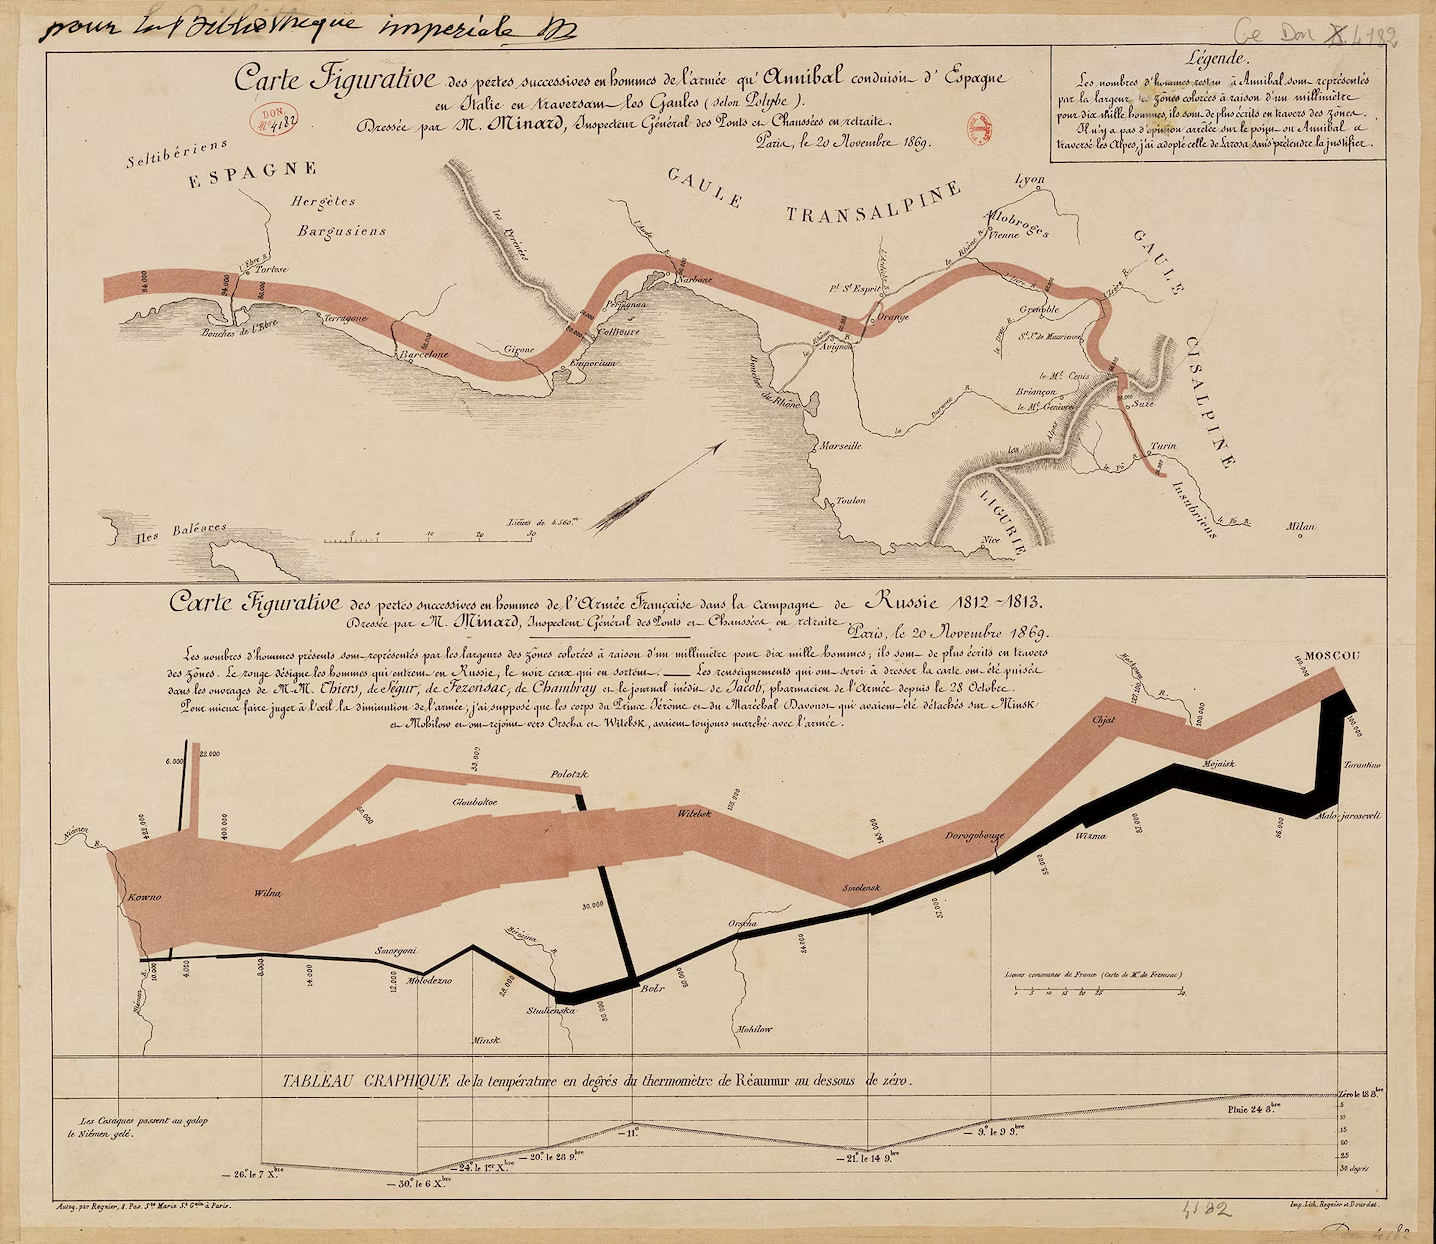 pour la Bibliothèque impériale
Don 4182
Carte Figurative des pertes successives en hommes de l'armée qu'Annibal conduisit d'Espagne
en Italie en traversant les Gaules (selon Polybe).
Dressée par M. Minard, Inspecteur Général des Ponts et Chaussées en retraite.
Paris, le 20 Novembre 1869.
DON.
4182
Légende.
Les nombres d'hommes restés à Annibal sont représentés
par la largeur des zônes colorées à raison d'un millimètre
pour dix mille hommes, ils sont de plus écrits en travers des zônes.
Il n'y a pas d'opinion arrêtée sur le point où Annibal a
traversé les Alpes, j'ai adopté celle de Larosa, sans prétendre la justifier.
Seltibériens
ESPAGNE
Hergètes
Bargusiens
les Pyrénées
GAULE TRANSALPINE
Lyon
Allobroges
Vienne
GAULE CISALPINE
l'Ebre R.
Tortose
94.000
94.000
Bouches de l'Ebre
Terragone
Barcelone
Girone
Emporium
Collioure
Perpignan
l'Aude R.
Narbonne
le Rhône R.
l'Ardèche R.
Pt. St Esprit
Orange
Avignon
le Rhône
Bouches du Rhône
l'Isère R.
Grenoble
le Drac R.
St. J. de Maurienne
le Mt. Cenis
Briançon
le Mt. Genèvre
la Durance R.
les Alpes
Suze
Turin
le Pô R.
Insubriens
le Pô R.
Milan
Marseille
Toulon
LIGURIE
Nice
Iles Baléares
Lieues de 4.560.m
5 0 10 20 30
Carte Figurative des pertes successives en hommes de l'Armée Française dans la campagne de Russie 1812-1813.
Dressée par M. Minard, Inspecteur Général des Ponts et Chaussées en retraite.
Paris, le 20 Novembre 1869.
Les nombres d'hommes présents sont représentés par les largeurs des zônes colorées à raison d'un millimètre pour dix mille hommes; ils sont de plus écrits en travers
des zônes. Le rouge désigne les hommes qui entrent en Russie, le noir ceux qui en sortent. — Les renseignements qui ont servi à dresser la carte ont été puisés
dans les ouvrages de M.M. Thiers, de Ségur, de Fezensac, de Chambray et le journal inédit de Jacob, pharmacien de l'Armée depuis le 28 Octobre.
Pour mieux faire juger à l'œil la diminution de l'armée, j'ai supposé que les corps du Prince Jérôme et du Maréchal Davoust qui avaient été détachés sur Minsk
et Mohilow et ont rejoint vers Orscha et Witebsk, avaient toujours marché avec l'armée.
MOSCOU
100.000
100.000
Moskowa R.
127.100
100.000
Chjat
Mojaisk
Tarantino
Malo-jarosewli
96.000
87.000
Wizma
55.000
Dorogobouge
145.000
Smolensk
37.000
24.000
175.000
Witebsk
Orscha
Mohilow
20.000
Bobr
30.000
Polotzk
33.000
Gloubokoe
60.000
22.000
6.000
400.000
422.000
Niémen R.
Kowno
Wilna
Smorgoni
Molodezno
Minsk
Bérézina R.
Studienska
50.000
28.000
12.000
14.000
8.000
4.000
10.000
Niémen R.
Lieues communes de France (Carte de M. de Fezensac)
0 5 10 15 20 25 50
TABLEAU GRAPHIQUE de la température en degrés du thermomètre de Réaumur au dessous de zéro.
Les Cosaques passent au galop
le Niémen gelé.
Zéro le 18 8.bre
Pluie 24 8.bre
5
10
15
20
25
30 degrés
— 9.° le 9 9.bre
— 21.° le 14 9.bre
— 11.°
— 20.° le 28 9.bre
— 24.° le 1.er X.bre
— 30.° le 6 X.bre
— 26.° le 7 X.bre
Autog. par Regnier, 8. Pas. Ste Marie St Gain à Paris.
Imp. Lith. Regnier et Dourdet.
4182